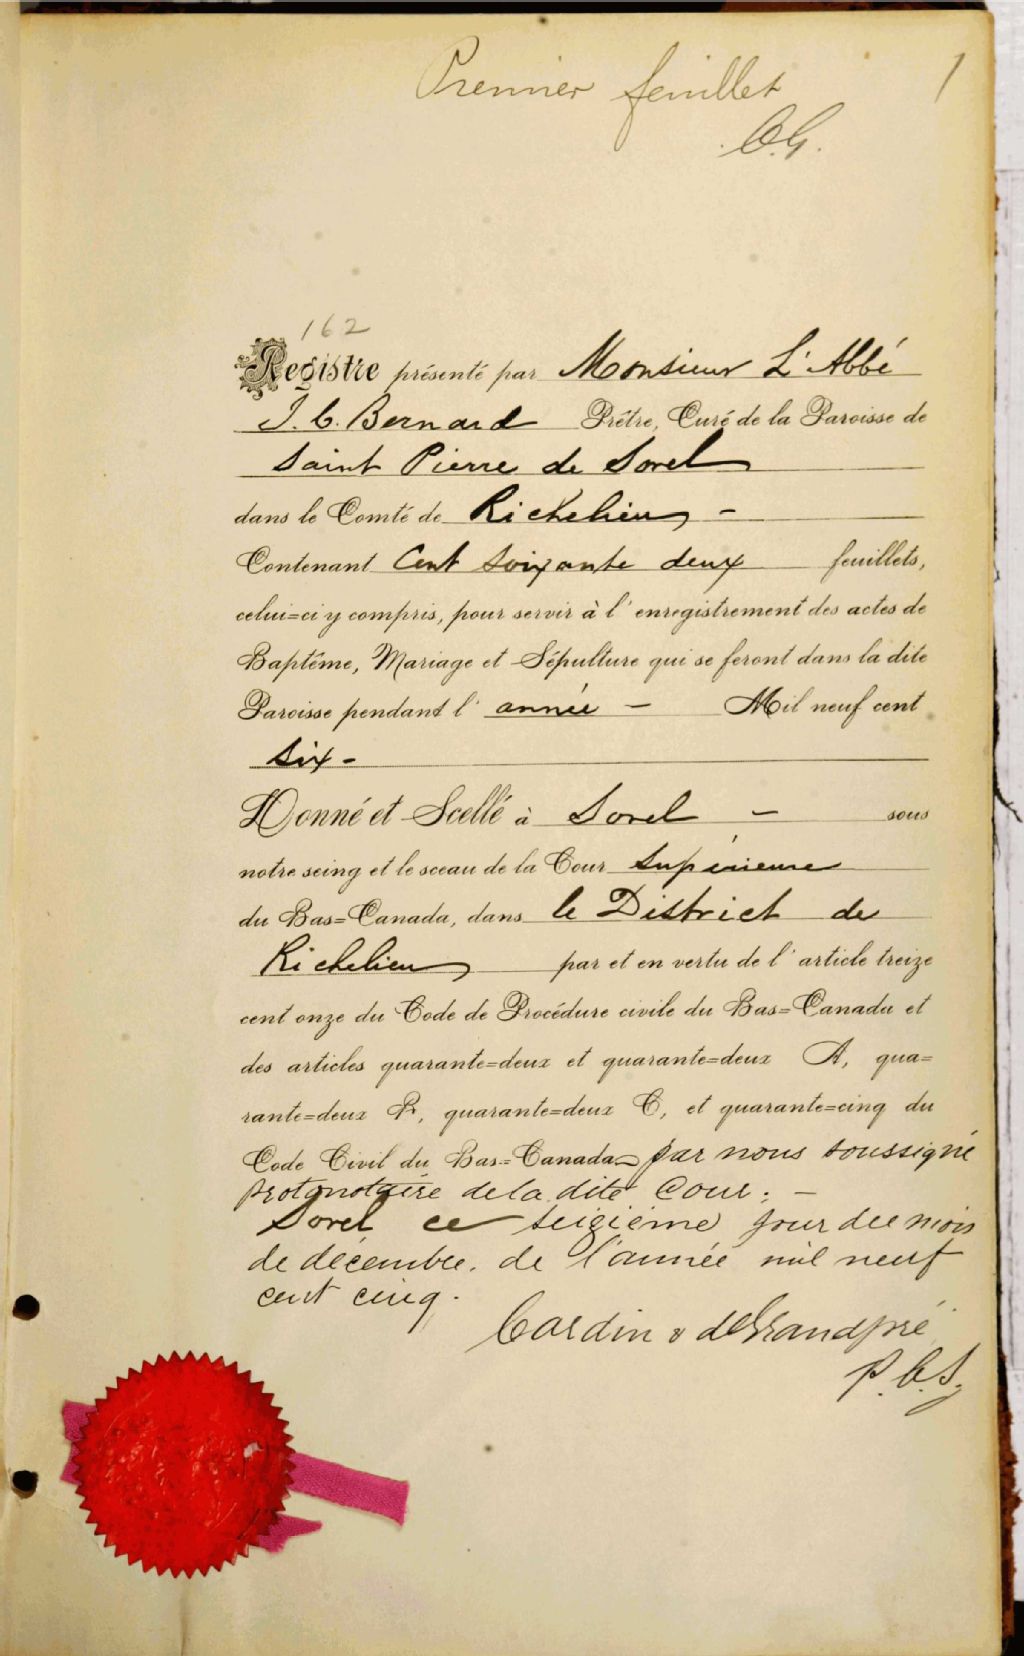 Premier feuillet
1
C.G.
162
Registre présenté par Monsieur L'Abbé
J. C. Bernard Prêtre, Curé de la Paroisse de
Saint Pierre de Sorel
dans le Comté de Richelieu -
Contenant Cent soixante deux feuillets,
celui=ci y compris, pour servir à l'enregistrement des actes de
Baptême, Mariage et Sépulture qui se feront dans la dite
Paroisse pendant l'année - Mil neuf cent
Six -
Donné et Scellé à Sorel - sous
notre seing et le sceau de la Cour Supérieure
du Bas=Canada, dans le District de
Richelieu par et en vertu de l'article treize
cent onze du Code de Procédure civile du Bas=Canada et
des articles quarante=deux et quarante=deux A, qua=
rante=deux B, quarante=deux C, et quarante=cinq du
Code Civil du Bas=Canada par nous soussigné
protonotaire de la dite Cour. -
Sorel ce seizième jour du mois
de décembre. de l'année mil neuf
cent cinq.
Cardin & deGrandpré
P.C.S.